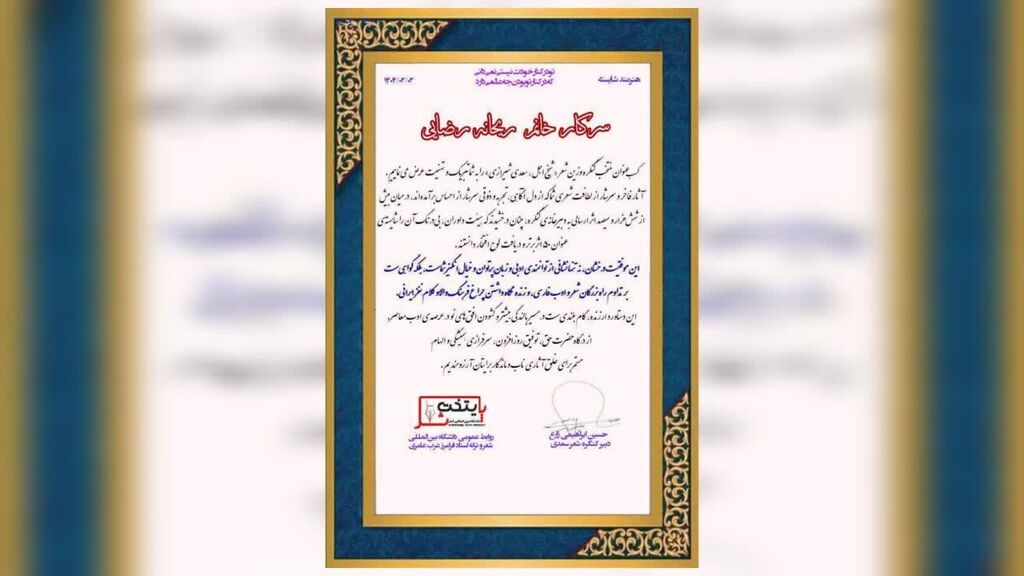 هنرمند شایسته
تو در کنار خودت نیستی نمی‌دانی
که در کنار تو بودن چه عالمی دارد
۱۴۰۴/۰۲/۰۲
سرکار خانم ریحانه رضایی
کسب عنوان منتخب کنگره وزین شعر (شیخ اجل، سعدی شیرازی) را به شما تبریک و تهنیت عرض می نماییم.
آثار فاخر و سرشار از لطافت شعری شما که از دل آگاهی، تجربه و ذوقی سرشار از احساس برآمده‌اند، در میان بیش
از شش هزار و سیصد اثر ارسالی به دبیرخانه‌ی کنگره، چنان درخشیدند که هیئت داوران، بی درنگ آن را شایسته‌ی
عنوان ۵۰ اثر برتر و دریافت لوح افتخار دانستند.
این موفقیت درخشان، نه تنها نشانی از توانمندی ادبی و زبان پرتوان و خیال انگیز شماست، بلکه گواهی ست
بر تداوم راه بزرگان شعر و ادب فارسی، و زنده نگاه داشتن چراغ فرهنگ والا و کلام نغز ایرانی.
این دستاورد ارزنده، گام بلندی ست در مسیر بالندگی بیشتر و گشودن افق های نو در عرصه‌ی ادب معاصر.
از درگاه حضرت حق، توفیق روزافزون، سرفرازی همیشگی و الهام
مستمر برای خلق آثاری ناب و ماندگار برایتان آرزومندیم.
حسین ابراهیمی زارع
دبیر کنگره شعر سعدی
پایتخت شعر
روابط عمومی دانشگاه بین‌المللی
شعر و ترانه استاد فرامرز عرب عامری